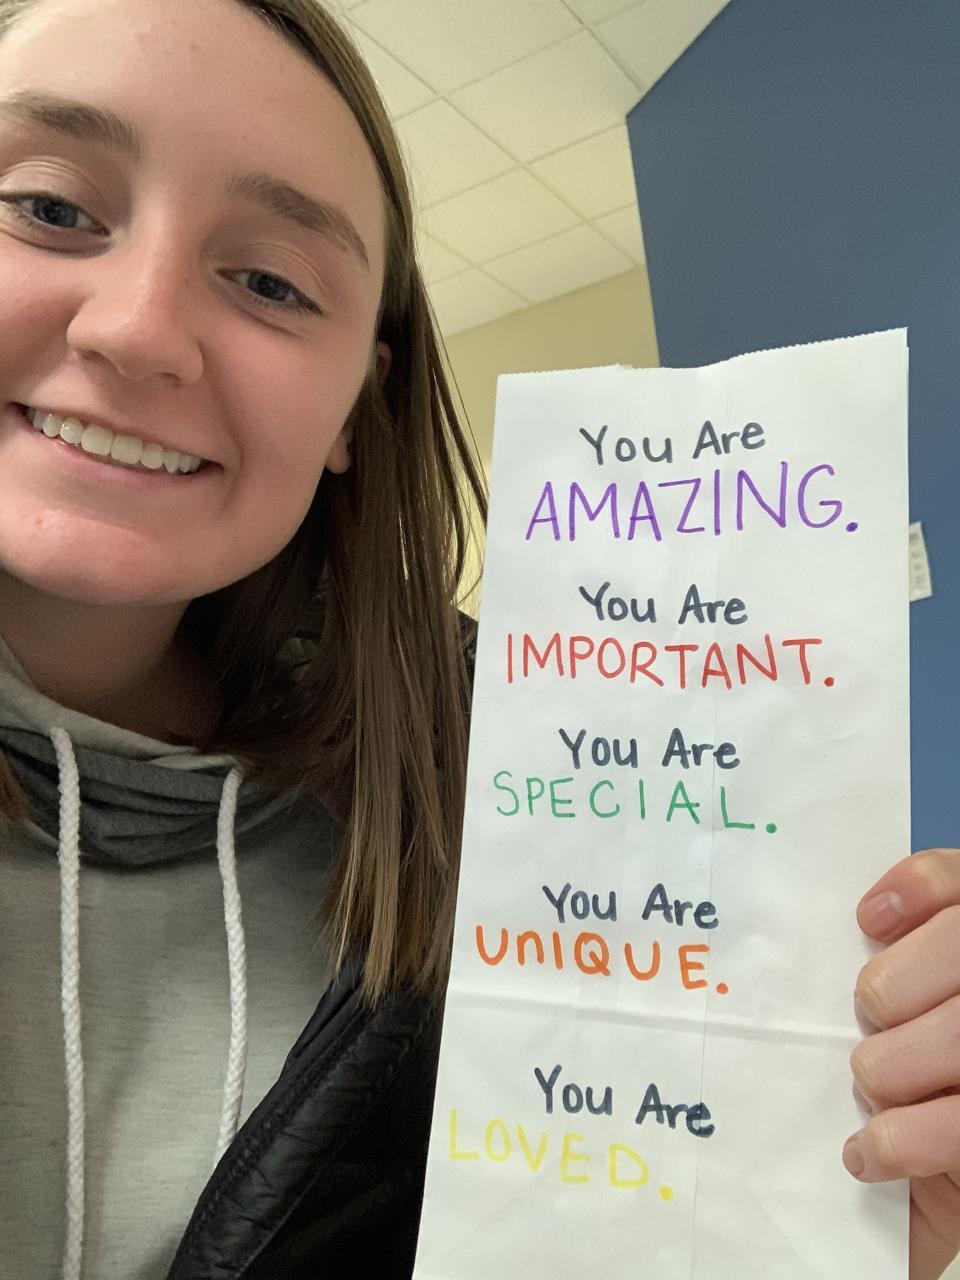 You Are
AMAZING.
You Are
IMPORTANT.
You Are
SPECIAL.
You Are
UnIQUE.
You Are
LOVED.